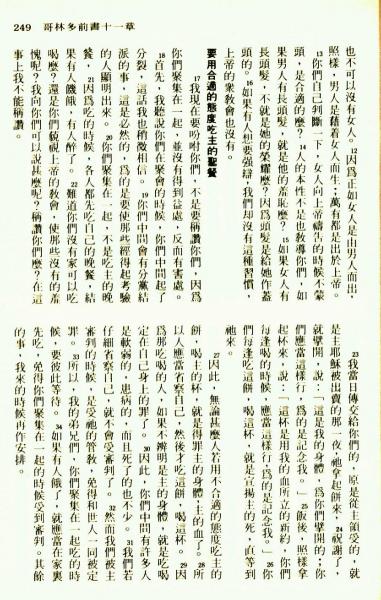 249 哥林多前書十一章
也不可以沒有女人。12因爲正如女人是由男人而出,
照樣,男人是藉着女人而生;萬有都是出於上帝。
13你們自己判斷一下,女人向上帝禱告的時候不蒙
頭,是合適的麼?14人的本性不是也教導你們,如
果男人有長頭髮,就是他的羞恥麼?15如果女人有
長頭髮,不就是她的榮耀麼?因爲頭髮是給她作蓋
頭的。16如果有人想要強辯,我們却沒有這種習慣,
上帝的衆教會也沒有。
要用合適的態度吃主的聖餐
17我現在要吩咐你們,不是要稱讚你們,因爲
你們聚集在一起,並沒有得到益處,反而有害處。
18首先,我聽說你們在聚會的時候,你們中間起了
分裂,這話我也稍微相信。19你們中間會有分黨結
派的事,這是必然的,爲的是要使那些經得起考驗
的人顯明出來。20你們聚集在一起,不是吃主的晚
餐,21因爲吃的時候,各人都先吃自己的晚餐,結
果有人饑餓,有人醉了。22難道你們沒有家可以吃
喝麼?還是你們藐視上帝的教會,使那些沒有的羞
愧呢?我向你們可以說甚麼呢?稱讚你們麼?在這
事上我不能稱讚。
23我當日傳交給你們的,原是從主領受的,就
是主耶穌被出賣的那一夜,祂拿起餅來,24祝謝了,
就擘開,說:「這是我的身體,爲你們擘開的;你
們應當這樣行,爲的是記念我。」25飯後,照樣拿
起杯來,說:「這杯是用我的血所立的新約,你們
每逢喝的時候,應當這樣行,爲的是記念我。」26你
們每逢吃這餅,喝這杯,就是宣揚主的死,直等到
祂來。
27因此,無論甚麼人若用不合適的態度吃主的
餅,喝主的杯,就是得罪主的身體、主的血了。28所
以人應當省察自己,然後才吃這餅,喝這杯。29因
爲那吃喝的人,如果不辨明是主的身體,就是吃喝
定在自己身上的罪了。30因此,你們中間有許多人
是軟弱的,患病的,而且死了的也不少。31我們若
仔細省察自己,就不會受審判了。32然而我們被主
審判的時候,是受祂的管敎,免得和世人一同被定
罪。33所以,我的弟兄們,你們聚集在一起吃的時
候,要彼此等待。34如果有人餓了,就應當在家裏
先吃,免得你們聚集在一起的時候受到審判。其餘
的事,我來的時候再作安排。